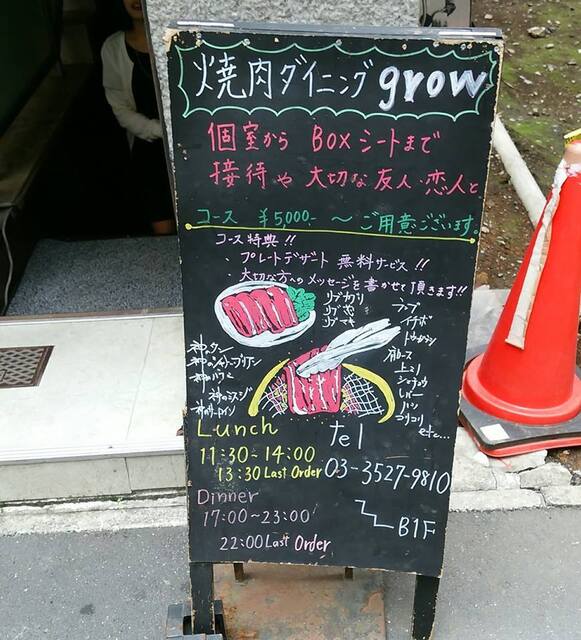 焼肉ダイニング grow
個室から BOXシートまで
接待や 大切な友人・恋人と
コース ¥5,000- ～ ご用意ございます。
コース特典!!
・プレートデザート 無料サービス!!
・大切な方へのメッセージを書かせて頂きます!!
リブカブリ
リブ芯
リブマキ
ランプ
イチボ
トウガラシ
肩ロース
上ミノ
シマチョウ
レバー
ハツ
コリコリ
etc...
神のタン
神のシャトーブリアン
神のハラミ
神のミスジ
神のサーロイン
Lunch
11:30-14:00
13:30 Last Order
Dinner
17:00～23:00
22:00 Last Order
tel
03-3527-9810
B1F